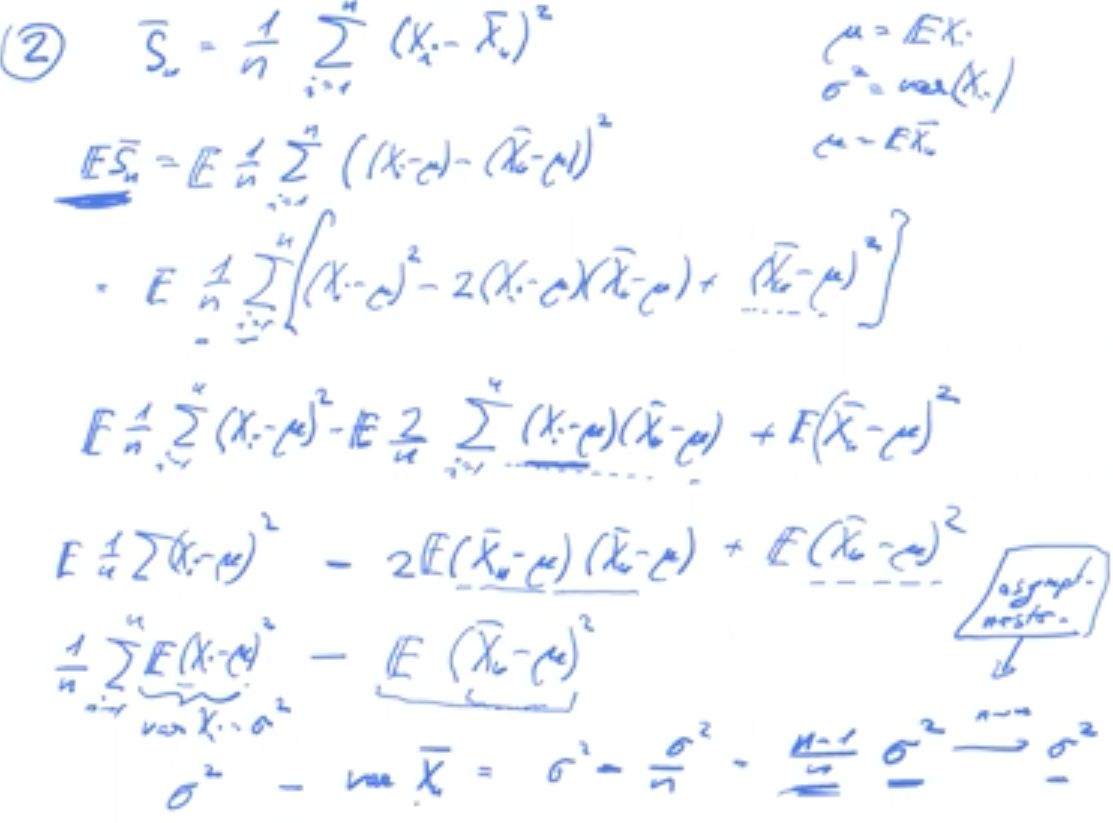 ② S̄ₙ = 1/n ∑ᵢ₌₁ⁿ (Xᵢ - X̄ₙ)²
μ = 𝔼Xᵢ
σ² = var(Xᵢ)
μ = EX̄ₙ
𝔼S̄ₙ = 𝔼 1/n ∑ᵢ₌₁ⁿ ((Xᵢ-μ) - (X̄ₙ-μ))²
= E 1/n ∑ᵢ₌₁ⁿ [(Xᵢ-μ)² - 2(Xᵢ-μ)(X̄ₙ-μ) + (X̄ₙ-μ)²]
E 1/n ∑ᵢ₌₁ⁿ (Xᵢ-μ)² - 𝔼 2/n ∑ᵢ₌₁ⁿ (Xᵢ-μ)(X̄ₙ-μ) + E(X̄ₙ-μ)²
E 1/n ∑(Xᵢ-μ)² - 2𝔼(X̄ₙ-μ)(X̄ₙ-μ) + 𝔼(X̄ₙ-μ)²
asympt.
1/n ∑ᵢ₌₁ⁿ 𝔼(Xᵢ-μ)² - 𝔼(X̄ₙ-μ)²
var Xᵢ = σ²
n→∞
σ² - var X̄ₙ = σ² - σ²/n = n-1/n σ² → σ²